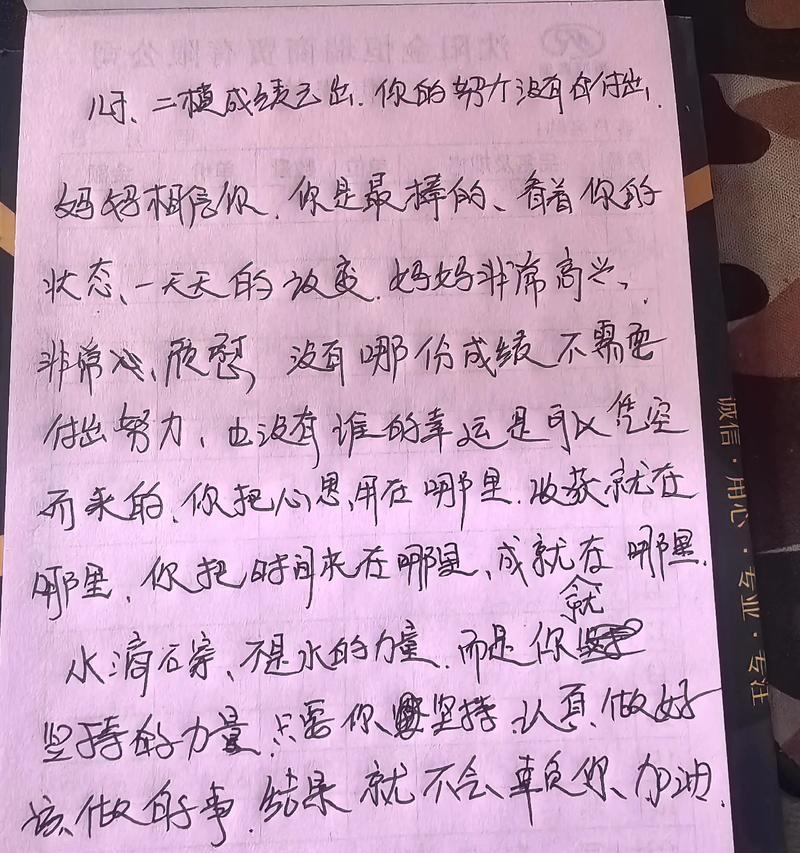 沈阳金恒瑞商贸有限公司
儿子、二模成绩已出.你的努力没有白付出.
妈妈相信你.你是最棒的、看着你的
状态、一天天的改变.妈妈非常高兴、
非常欣慰,没有哪份成绩不需要
付出努力、也没有谁的幸运是可以凭空
而来的.你把心思用在哪里.收获就在
哪里,你把时间夹在哪里、成就在哪里.
就
水滴石穿、不是水的力量.而是你
坚持的力量.只要你坚持.认真.做好
该做的事.结果就不会辜负你、加油.
诚信·用心·专业·专注